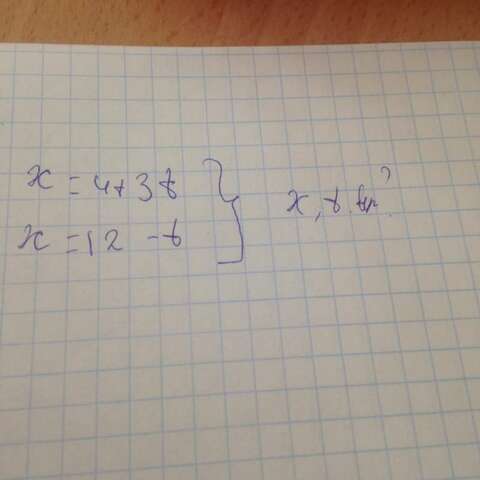 x = 4+3t
x = 12 - t } x, t вр?